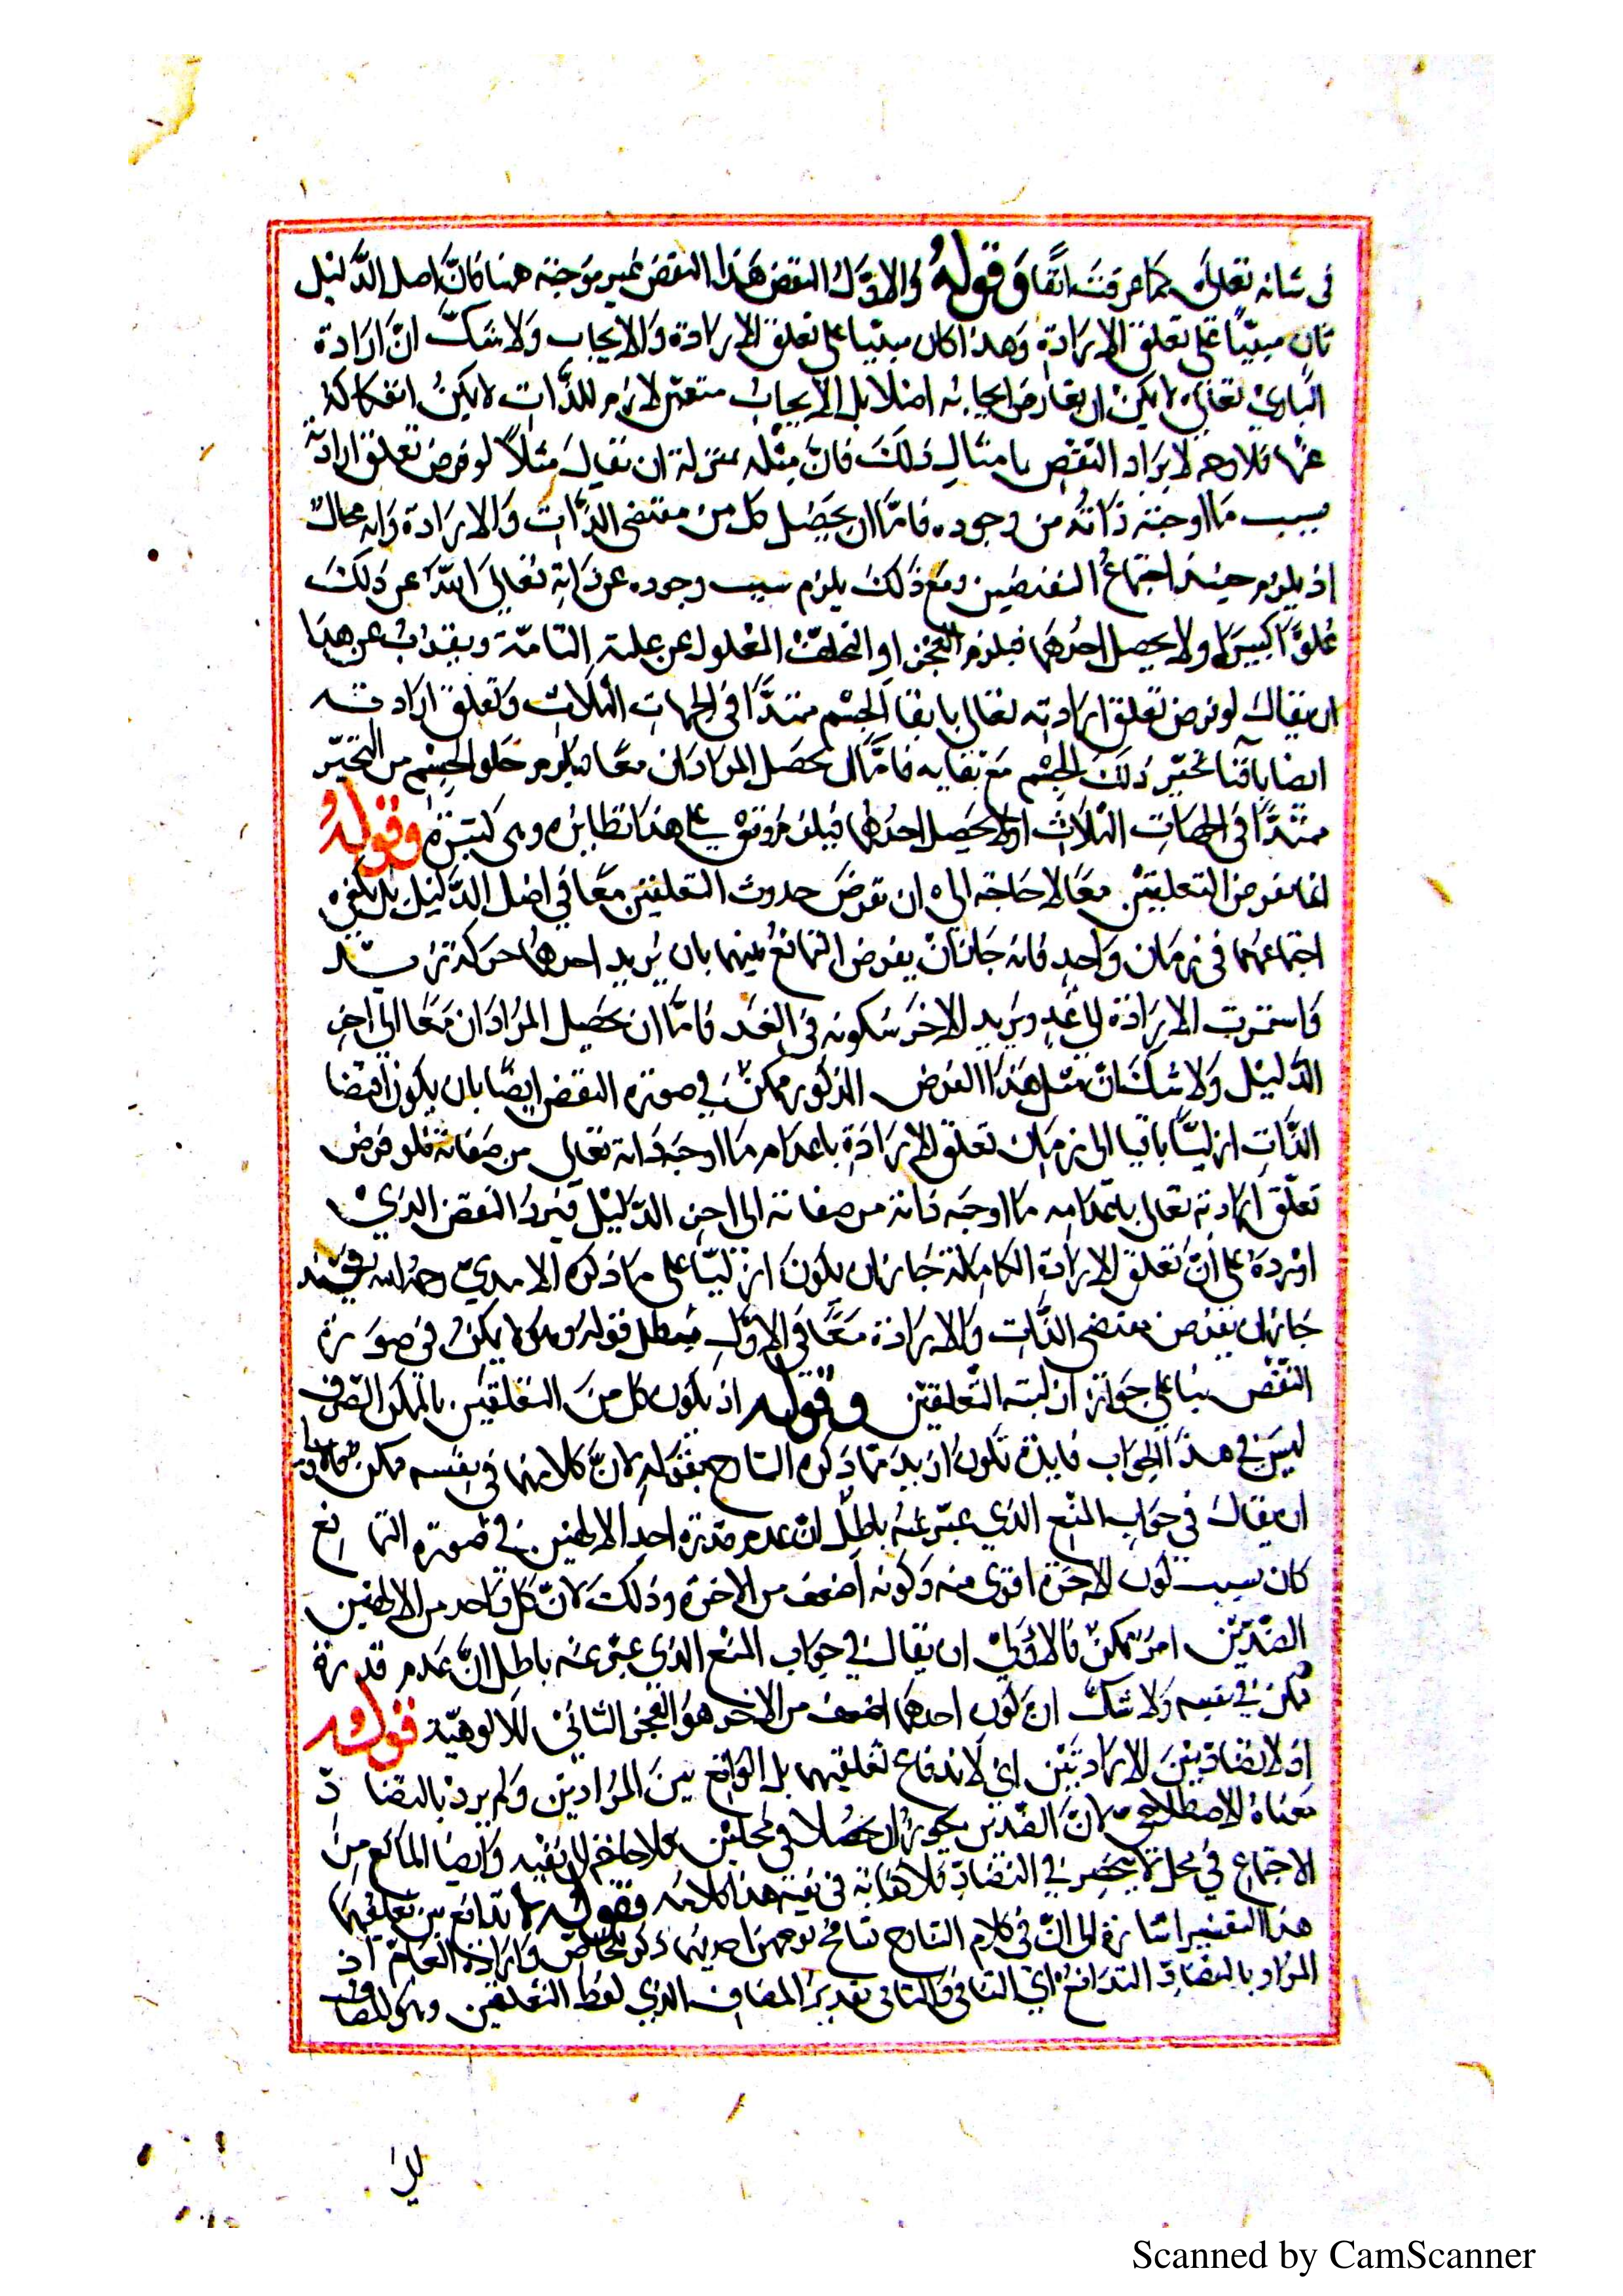 في شانه تعالى كما عرفت انفا وقوله والاول النقض هذا النقض غير موجه ههنا فان اصل الدليل
كان مبنيا على تعلق الارادة وهذا كان مبنيا على تعلق الارادة والايجاب ولا شك ان ارادة
الباري تعالى لا يمكن ان يعارض ايجابه اصلا بل الايجاب لازم للذات لا يمكن انفكاكه
عنها فلا وجه لايراد النقض بامثال ذلك فان مثله بمنزلة ان يقال مثلا لو فرض تعلق ارادته
بسبب ما اوجبته ذاته من وجوده فاما ان يحصل كل من مقتضى الذات والارادة وانه محال
اذ يلزم حينئذ اجتماع النقيضين ومع ذلك يلزم سبب وجوده عن ذاته تعالى الله عن ذلك
علوا كبيرا اولا يحصل احدهما فيلزم العجز او التخلف المعلول عن علته التامة ويقرب عن هذا
ان يقال لو فرض تعلق ارادته تعالى بابقا الجسم ممتدا في الجهات الثلاث وتعلق ارادته
ايضا تحيز ذلك الجسم مع بقايه فاما ان يحصل المرادان معا فيلزم خلو الجسم من التحيز
ممتدا في الجهات الثلاث اولا يحصل احدهما فيلزم على هذا نظايره وهي كثيرة وقوله
التعليقين معا لا حاجة الى ان تفرض حدوث التعلقين معا في اصل الدليل بل يكفي
اجتماعهما في زمان واحد فانه جاز ان يفرض التمانع بينهما بان يريد احدهما حركة زيد
فاستمرت الارادة الى غد ويريد الاخر سكونه في الغد فاما ان يحصل المرادان معا الى اخر
الدليل ولا شك ان مثل هذا الفرض المذكور ممكن في صورة النقض ايضا بان يكون اقتضا
الذات ازليا باقيا الى زمان تعلق الارادة باعدام ما اوجبه ذاته تعالى من صفاته فلو فرض
تعلق ارادته تعالى باعدامه ما اوجبه ذاته من صفاته الى اخر الدليل فيرد النقض الذي
اورده على ان تعلق الارادة الكاملة جاز ان يكون ازليا على ما ذكره الامدي رحمه الله فحينئذ
جاز ان يفرض مقتضى الذات والارادة معا في الاول فبطل قوله وهو لا يمكن في صورة
النقض بنا على جواز ازلية التعلقين وقوله اذ يكون كل من التعلقين بالممكن الصرف
ليس في هذا الجواب فايدة تكون ازيد مما ذكره الشارح بقوله لان كلا منهما في نفسه ممكن فالاولى
ان يقال في جواب المنع الذي عبر عنه باطل ان عدم قدرة احد الالهين في صورة التمانع
كان بسبب كون الاخر اقوى منه وكونه اضعف من الاخر وذلك لان كل واحد من الالهين
الضدين امر ممكن فالاولى ان يقال في جواب المنع الذي عبر عنه باطل ان عدم قدرة
ممكن في نفسه ولا شك ان كون احدهما اضعف من الاخر هو العجز للالوهية قوله
اذ لا تضاد بين الارادتين اي لا تدافع لتعلقيهما بل الواقع بين المرادين ولم يرد بالتضاد
معناه الاصطلاحي لان الضدين يجوز ان يحصلا في محلين وايضا المانع من
الاجتماع في محل لا ينحصر في التضاد هذا كلامه وقوله لا تدافع بين تعلقيهما
هذا التفسير اشارة الى ان في كلام الشارح تسامح احديهما ذكر الخاص وارادة العام اذ
المراد بالتضاد التدافع اي التنافي والثاني تقدير المضاف الذي لفظ التعلقين